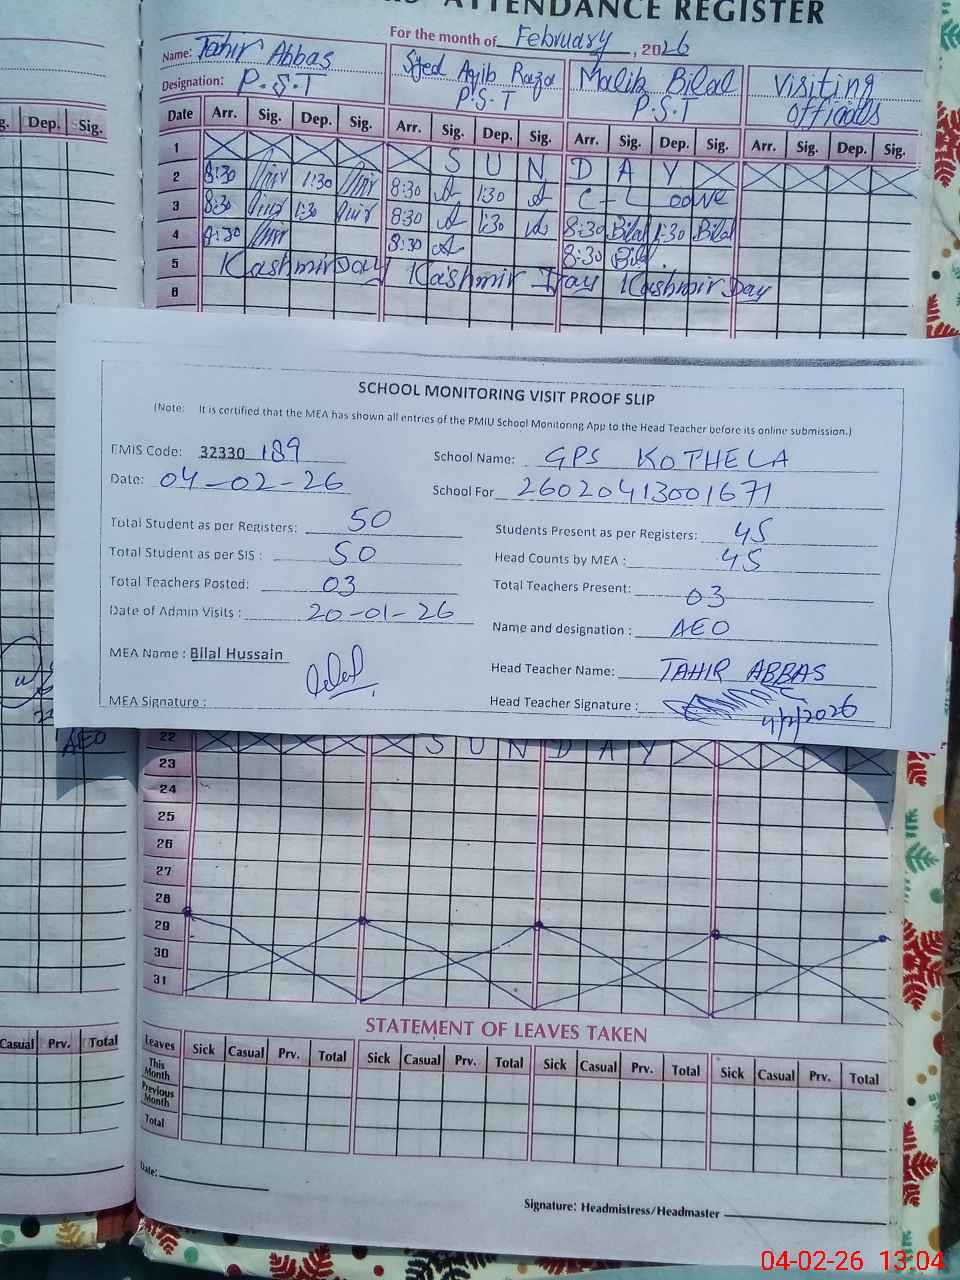 ATTENDANCE REGISTER
For the month of February, 2026
Name: Tahir Abbas Syed Aqib Raza Malik Bilal Visiting officials
Designation: P.S.T P.S.T P.S.T
g. Dep. Sig.
Date Arr. Sig. Dep. Sig. Arr. Sig. Dep. Sig. Arr. Sig. Dep. Sig. Arr. Sig. Dep. Sig.
1 S U N D A Y
2 8:30 1:30 8:30 1:30 C-L
3 8:30 1:30 8:30 1:30 8:30 Bilal 1:30 Bilal
4 8:30 8:30 8:30 Bilal
5 Kashmir Day Kashmir Day Kashmir Day
6
SCHOOL MONITORING VISIT PROOF SLIP
(Note: It is certified that the MEA has shown all entries of the PMIU School Monitoring App to the Head Teacher before its online submission.)
EMIS Code: 32330 189 School Name: GPS KOTHELA
Date: 04-02-26 School For 26020413001671
Total Student as per Registers: 50 Students Present as per Registers: 45
Total Student as per SIS : 50 Head Counts by MEA : 45
Total Teachers Posted: 03 Total Teachers Present: 03
Date of Admin Visits : 20-01-26 Name and designation : AEO
MEA Name : Bilal Hussain Head Teacher Name: TAHIR ABBAS
MEA Signature : Head Teacher Signature : 4/2/2026
AEO
22 S U N D A Y
23
24
25
26
27
28
29
30
31
STATEMENT OF LEAVES TAKEN
Casual Prv. Total
Leaves Sick Casual Prv. Total Sick Casual Prv. Total Sick Casual Prv. Total Sick Casual Prv. Total
This Month
Previous Month
Total
Date:
Signature: Headmistress/Headmaster
04-02-26 13:04